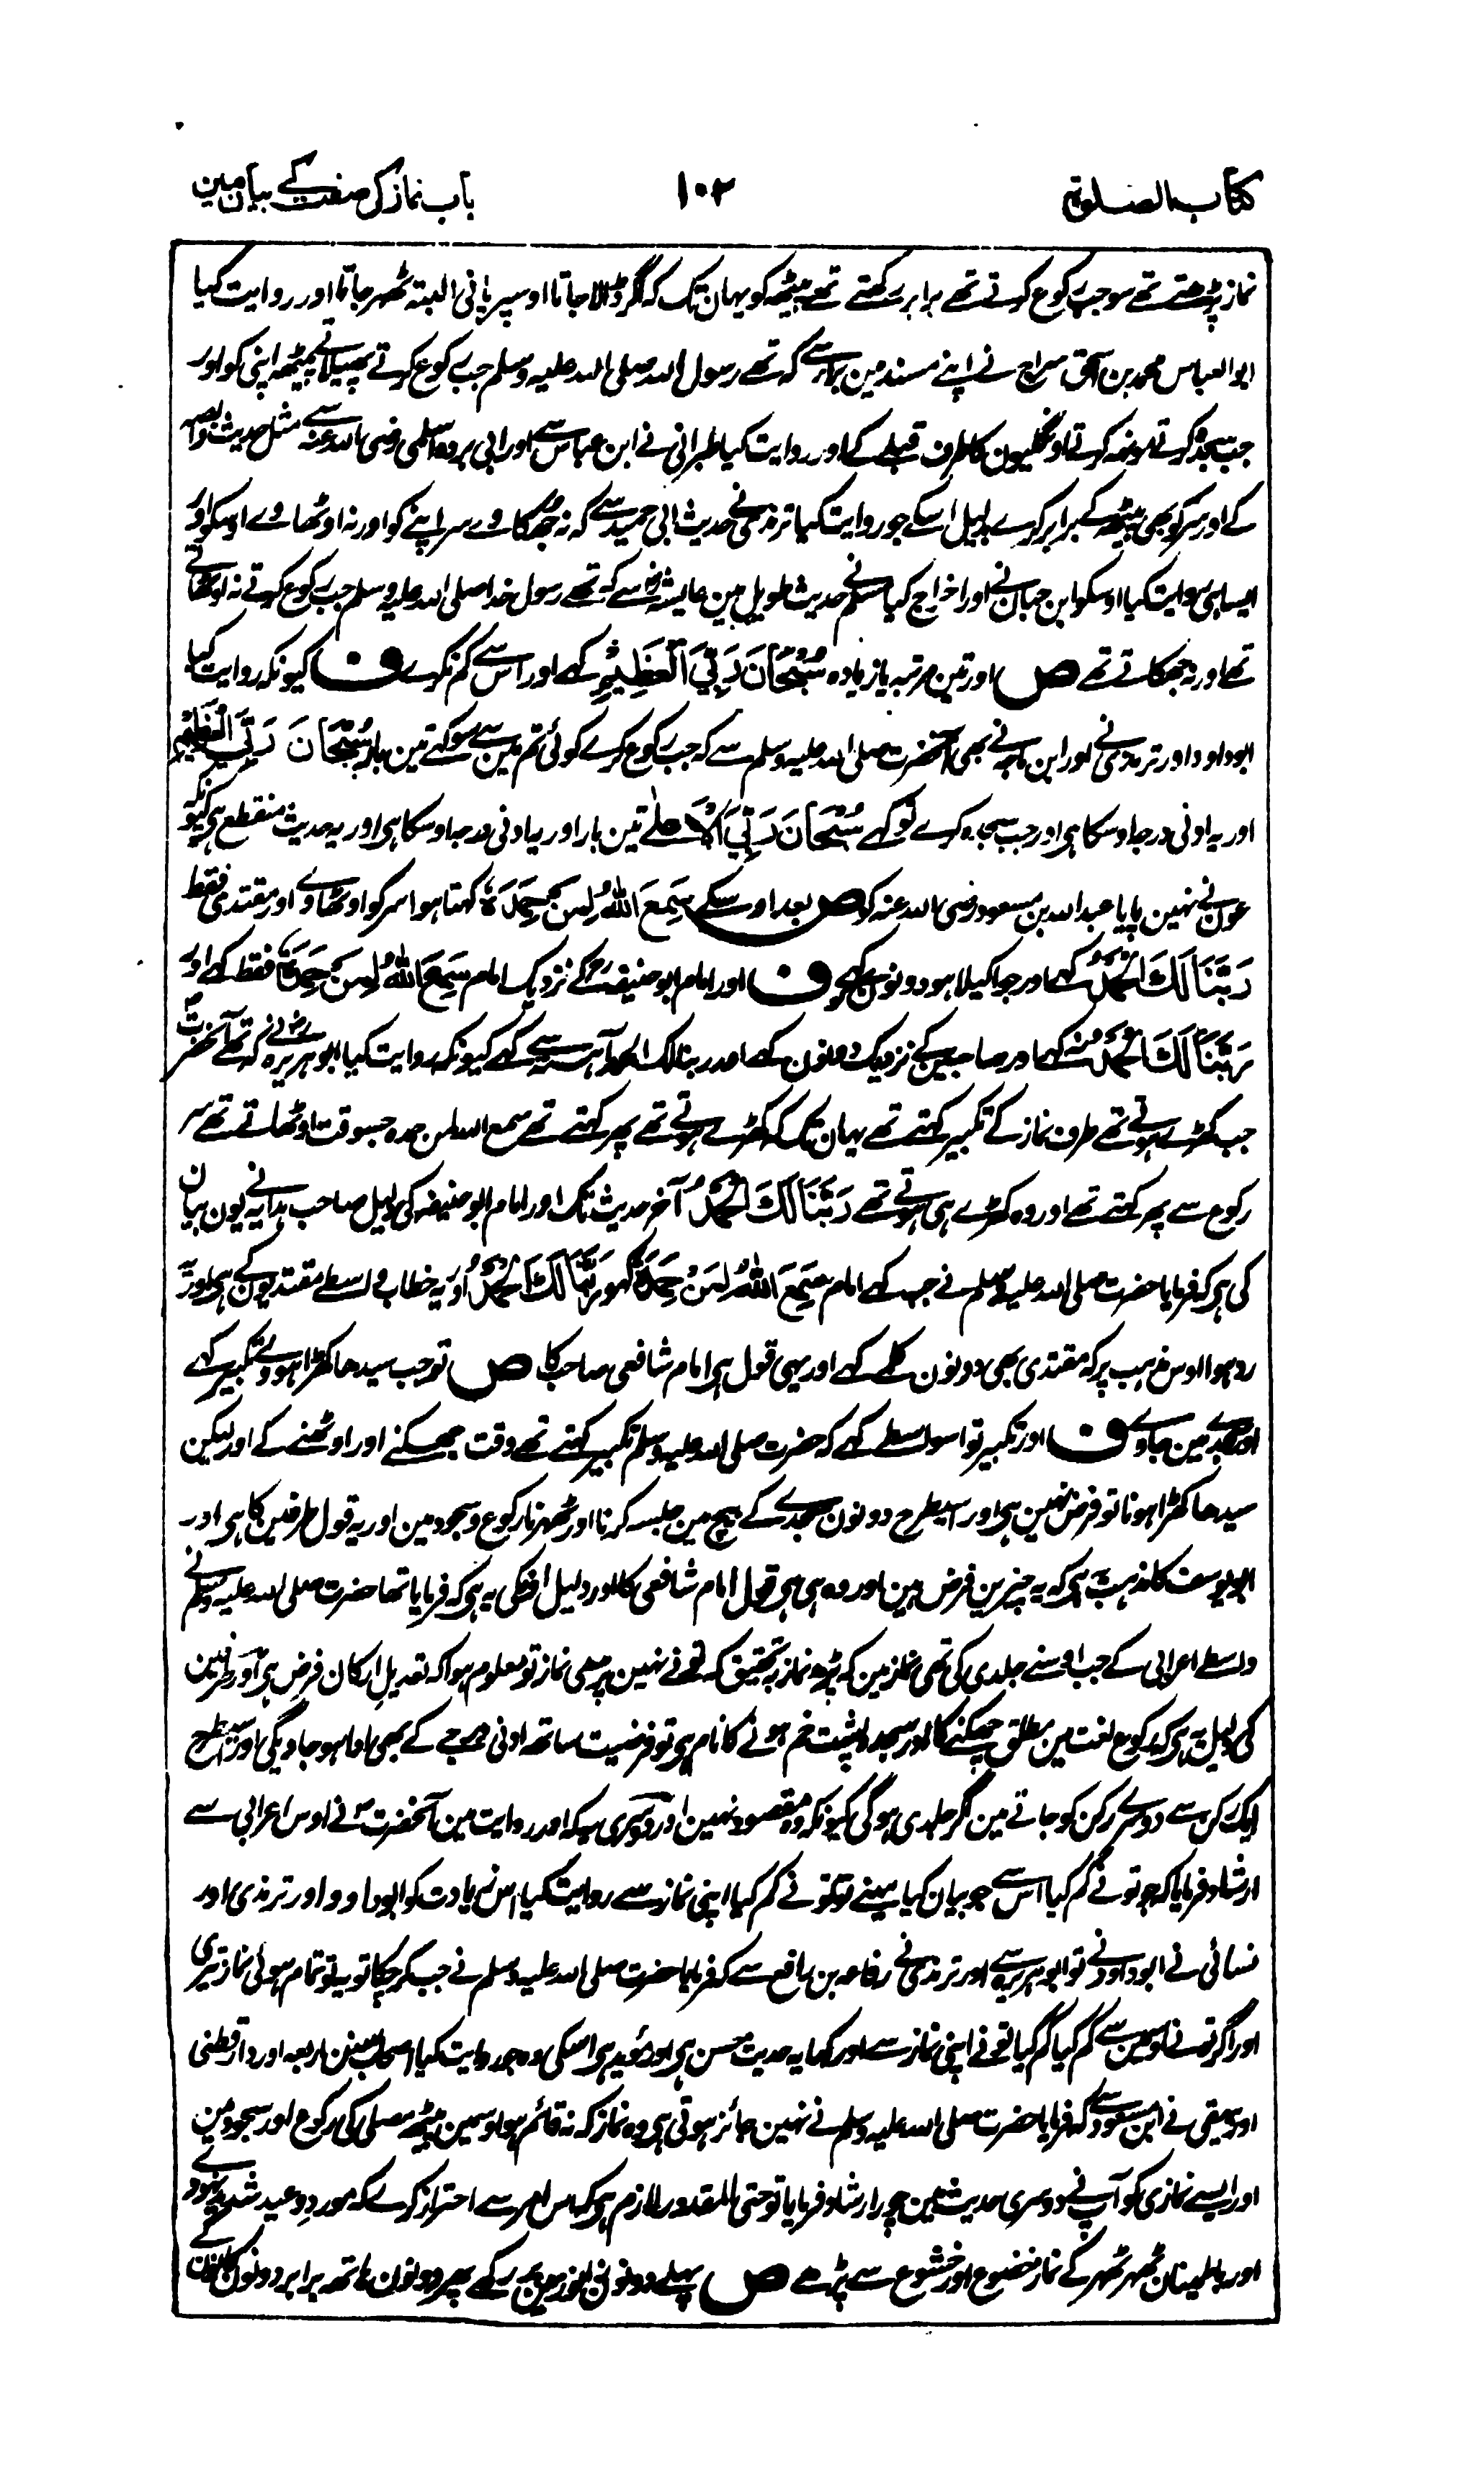 کتاب الصلوٰۃ
۱۰۲
باب نماز کی صفت کے بیان مین
نماز پڑھتے تھے سو جب رکوع کرتے تھے برابر رکھتے تھے پیٹھ کو یہان تک کہ اگر ڈالا جاتا اوسپر پانی البتہ ٹھہر جاتا اور روایت کیا
ابو العباس محمد بن اسحٰق سراج نے اپنے مسند مین براء سے کہ تھے رسول اللہ صلی اللہ علیہ وسلم جب رکوع کرتے پھیلاتے پیٹھ اپنی کو اور
جب سجدہ کرتے مونھہ کرتے اونگلیون کا طرف قبلے کے اور روایت کیا طبرانی نے ابن عباس سے اور ابی برزہ اسلمی رضی اللہ عنہ سے مثل حدیث وابصہ
کے اور سر کو بھی پیٹھ کے برابر کرے بدلیل اسکے جو روایت کیا ترمذی نے حدیث ابی حمید سے کہ نہ جھکاوے سر اپنے کو اور نہ اوٹھاوے اوسکو اور
ایسا ہی روایت کیا اوسکو ابن حبان نے اور اخراج کیا مسلم نے حدیث طویل مین عایشہ رض سے کہ تھے رسول خدا صلی اللہ علیہ وسلم جب رکوع کرتے نہ اوٹھاتے
تھے اور نہ جھکاتے تھے ص اور تین مرتبہ یا زیادہ سُبْحَانَ رَبِّيَ الْعَظِيْمِ کہے اور اس سے کم نکرے ف کیونکہ روایت کیا
ابو داود اور ترمذی نے اور ابن ماجہ نے بھی آنحضرت صلی اللہ علیہ وسلم سے کہ جب رکوع کرے کوئی تم مین سے سو کہے تین بار سُبْحَانَ رَبِّيَ الْعَظِيْمِ
اور یہ ادنی درجا اوسکا ہی اور جب سجدہ کرے تو کہے سُبْحَانَ رَبِّيَ الْاَعْلٰے تین بار اور یہ ادنی درجا اوسکا ہی اور یہ حدیث منقطع ہی کیونکہ
عون نے نہین پایا عبد اللہ بن مسعود رضی اللہ عنہ کو ص بعد اوسکے سَمِعَ اللّٰهُ لِمَنْ حَمِدَهٗ کہتا ہوا سر کو اوٹھاوے اور مقتدی فقط
رَبَّنَا لَكَ الْحَمْدُ کہے اور جو اکیلا ہو دونون کہے ف اور امام ابو حنیفہ رح کے نزدیک امام سَمِعَ اللّٰهُ لِمَنْ حَمِدَهٗ فقط کہے اور
رَبَّنَا لَكَ الْحَمْدُ نہ کہے اور صاحبین کے نزدیک دونون کہے اور ربنا لک الحمد آہستہ سے کہے کیونکہ روایت کیا ابو ہریرہ رض نے کہ تھے آنحضرت
جب کھڑے ہوتے تھے طرف نماز کے تکبیر کہتے تھے یہان تک کہ کھڑے ہوتے تھے پھر کہتے تھے سمع اللہ لمن حمدہ جسوقت اوٹھاتے تھے سر
رکوع سے پھر کہتے تھے اور وہ کھڑے ہی ہوتے تھے رَبَّنَا لَكَ الْحَمْدُ آخر حدیث تک اور امام ابو حنیفہ کی دلیل صاحب ہدایہ نے یون بیان
کی ہی کہ فرمایا حضرت صلی اللہ علیہ وسلم نے جب کہے امام سَمِعَ اللّٰهُ لِمَنْ حَمِدَهٗ کہو رَبَّنَا لَكَ الْحَمْدُ اور یہ خطاب واسطے مقتدیون کے ہی اور یہ
رد ہوا اوس مذہب پر کہ مقتدی بھی دونون کلمے کہے اور یہی قول ہی امام شافعی صاحب کا ص تو جب سیدھا کھڑا ہووے تکبیر کہے
اور سجدے مین جاوے ف اور تکبیر تو اسواسطے کہے کہ حضرت صلی اللہ علیہ وسلم تکبیر کہتے تھے وقت جھکنے اور اوٹھنے کے اور لیکن
سیدھا کھڑا ہونا تو فرض نہین ہی اور اسیطرح دونون سجدے کے بیچ مین جلسہ کرنا اور ٹھہرنا رکوع و سجود مین اور یہ قول طرفین کا ہی اور
ابو یوسف کا مذہب ہی کہ یہ چیزین فرض ہین اور وہ ہی ہی قول امام شافعی کا اور دلیل اونکی یہ ہی کہ فرمایا تھا حضرت صلی اللہ علیہ وسلم نے
واسطے اعرابی کے جب اوسنے جلدی کی تھی نماز مین کہ پڑھ نماز بتحقیق کہ تونے نہین پڑھی نماز تو معلوم ہوا کہ تعدیل ارکان فرض ہی اور طرفین
کی دلیل یہ ہی کہ رکوع لغت مین مطلق جھکنے کا اور سجدہ پشت خم ہونے کا نام ہی تو فرضیت ساتھ ادنی درجے کے بھی ادا ہو جاویگی اور اسیطرح
ایک رکن سے دوسرے رکن کو جانے مین اگر جلدی ہوگی کیونکہ وہ مقصود نہین اور دوسری یہ کہ اور روایت مین آنحضرت ص نے اوس اعرابی سے
ارشاد فرمایا کہ جو تونے کم کیا اس سے جو بیان کیا مینے تو تونے کم کیا اپنی نماز سے روایت کیا اس زیادت کو ابو داود اور ترمذی اور
نسائی نے ابو داود نے تو ابو ہریرہ سے اور ترمذی نے رفاعہ بن رافع سے کہ فرمایا حضرت صلی اللہ علیہ وسلم نے جب کر چکا تو یہ تو تمام ہوئی نماز تیری
اور اگر تونے اوسمین سے کم کیا کم کیا تونے اپنی نماز سے اور کہا یہ حدیث حسن ہی اور مؤید ہی اسکی وہ جو روایت کیا اصحاب سنن اربعہ اور دارقطنی
اور بیہقی نے ابن مسعود سے کہ فرمایا حضرت صلی اللہ علیہ وسلم نے نہین جائز ہوتی ہی وہ نماز کہ نہ قائم ہو اوسمین پیٹھ مصلی کی رکوع اور سجود مین
اور ایسے نمازی کو آپ نے دوسری حدیث مین چور ارشاد فرمایا تو حتی المقدور لازم ہی کہ اس امر سے احتراز کرے کہ مورد وعید شدید نہووے
اور باطمینان ٹھہر ٹھہر کے نماز خضوع اور خشوع سے پڑھے ص پہلے دونون زانو زمین پر رکھے پھر دونون ہاتھ برابر دونون کانون کے